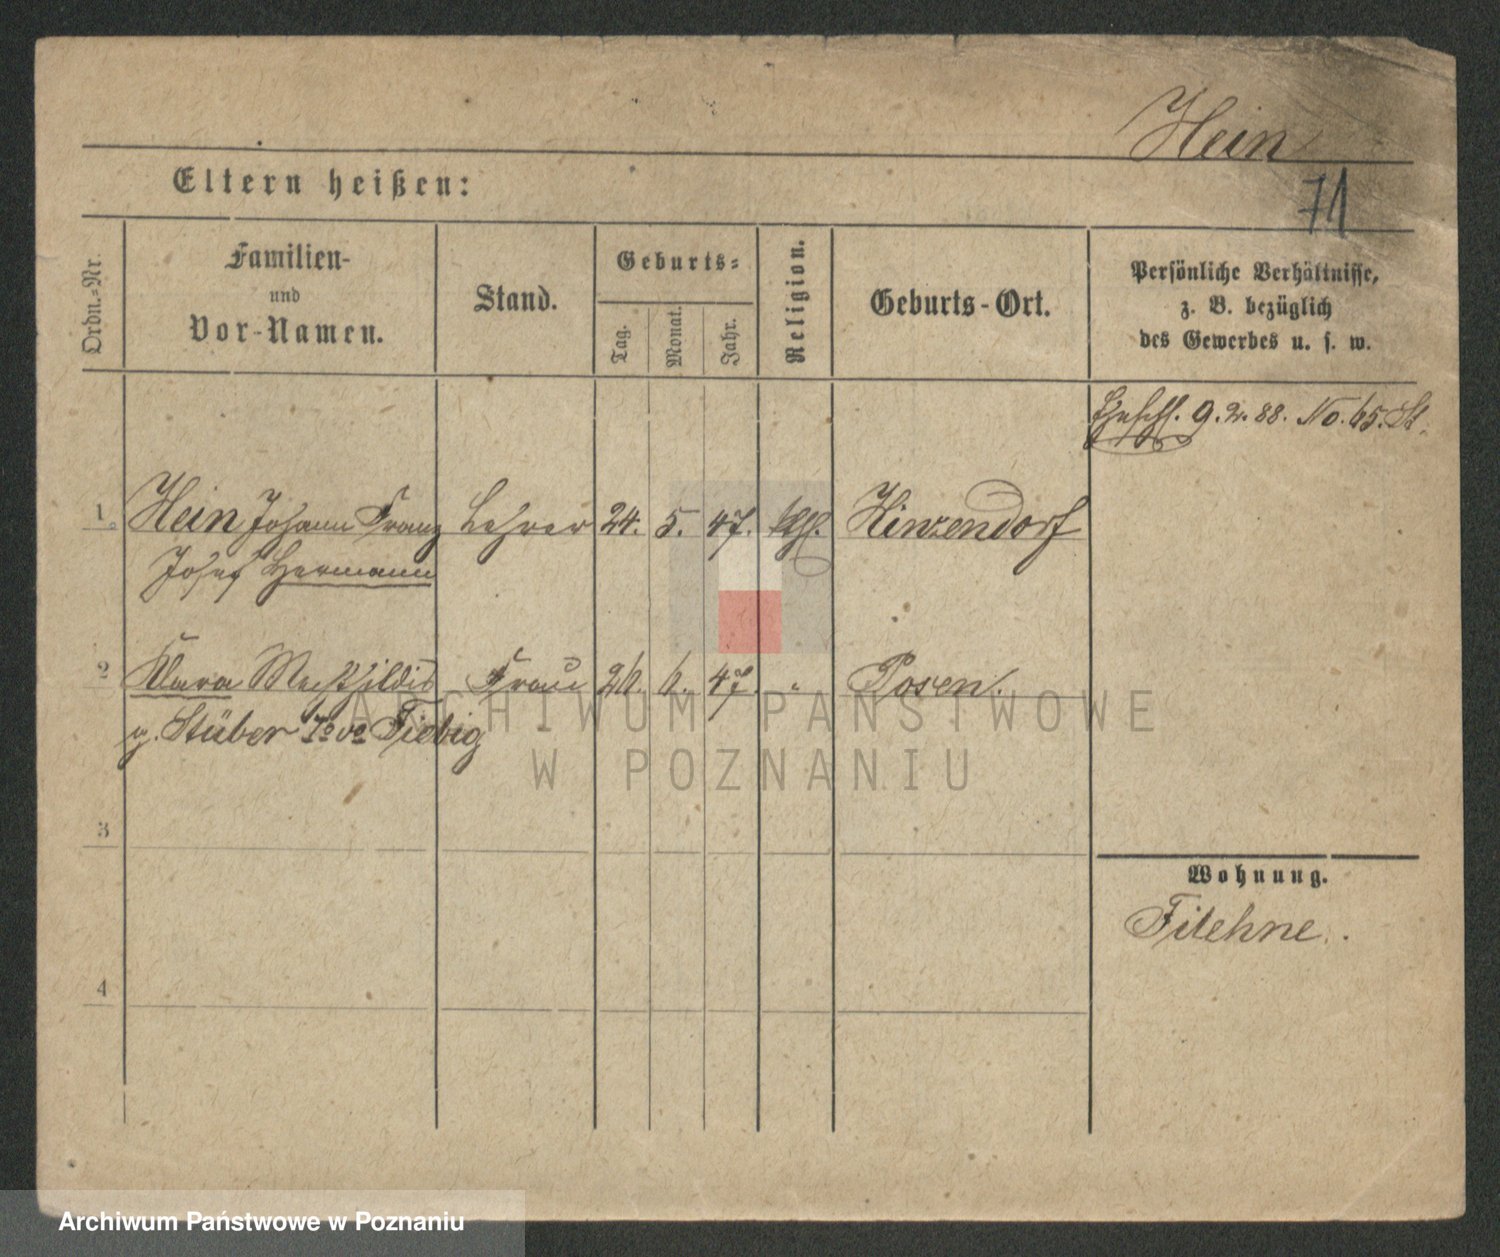 Hein
Eltern heißen:
71
Ordn.-Nr.
Familien-
und
Vor-Namen.
Stand.
Geburts-
Tag.
Monat.
Jahr.
Religion.
Geburts-Ort.
Persönliche Verhältnisse,
z. B. bezüglich
des Gewerbes u. s. w.
9. 2. 88. No. 65. St.
1. Hein Johann Franz Lehrer 24. 5. 47. kth. Hinzendorf
Josef Hermann
2 Klara Mechtildis Frau 26. 6. 47. " Posen.
g. Stüber 1o vo Fiebig
3
4
Wohnung.
Filehne.
ARCHIWUM PAŃSTWOWE
W POZNANIU
Archiwum Państwowe w Poznaniu